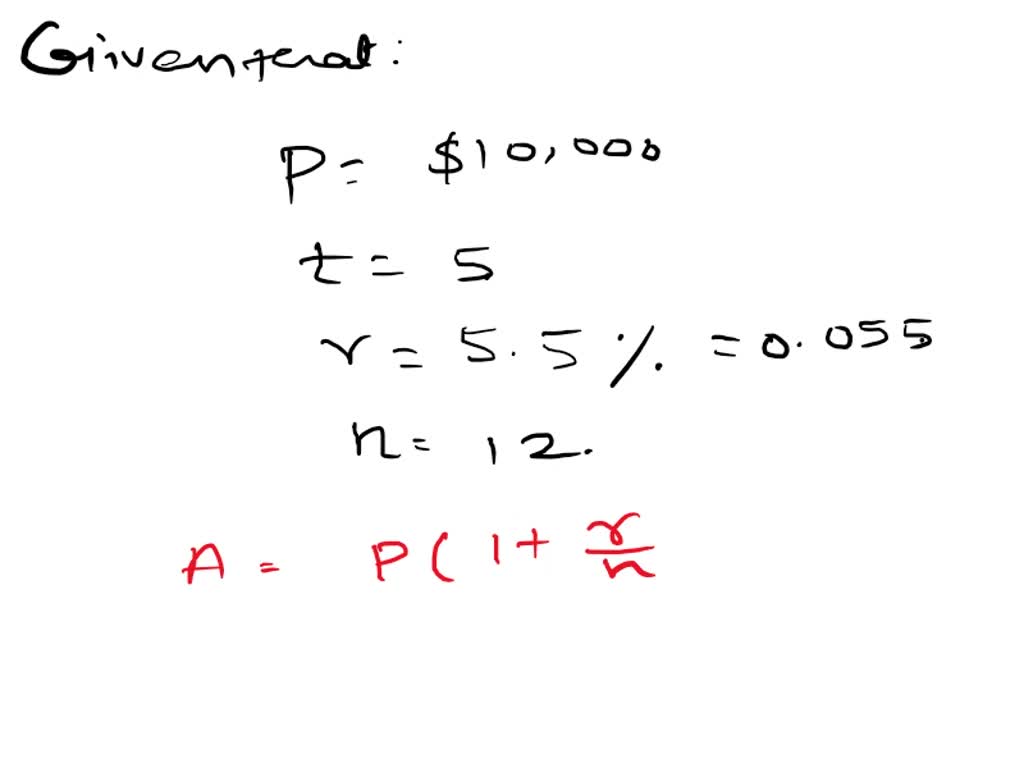 Given that:
P = $10,000
t = 5
r = 5.5% = 0.055
n = 12.
A = P(1 + r/n